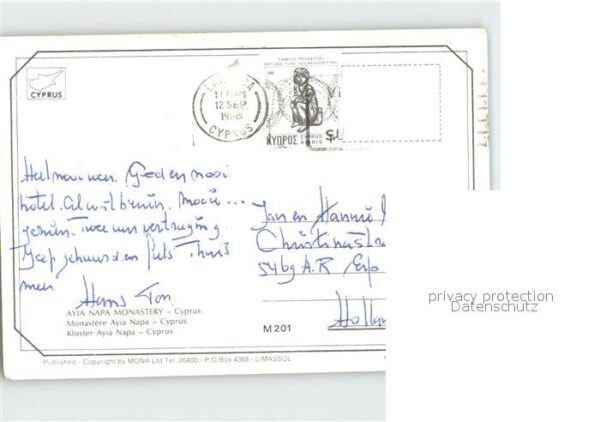 CYPRUS
11
12 SEP
19
CYPRUS
REFUGEE FUND
ΚΥΠΡΟΣ CYPRUS KIBRIS
Heel mooi weer. Goed en mooi
hotel. Al wat bruin. Mooie ...
Twee uur vertraging
Jeep gehuurd en fiets Thuis
meer
Hans Ton
Jan en Hannie
Christinastra
5469 A.R Erp
Holla
AYIA NAPA MONASTERY – Cyprus
Monastère Ayia Napa – Cyprus
Kloster Ayia Napa – Cyprus
M 201
Published - Copyright by MONA Ltd Tel. 26400 - P.O.Box 4368 - LIMASSOL
privacy protection
Datenschutz